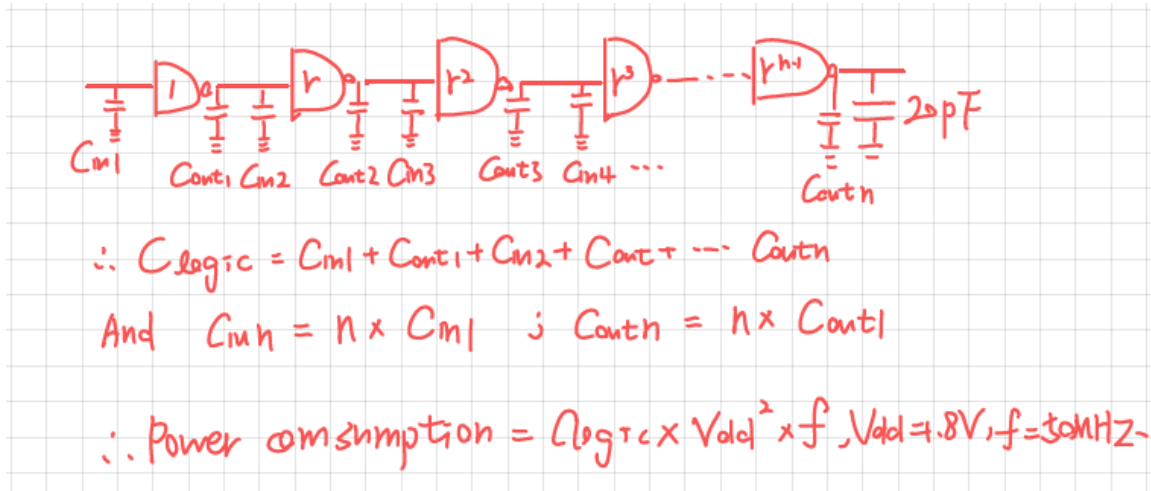 1 r r² r³ ---- rⁿ⁻¹
20pF
Cin1 Cout1 Cin2 Cout2 Cin3 Cout3 Cin4 ...
Coutn
∴ Clogic = Cin1 + Cout1 + Cin2 + Cout + ---- Coutn
And Cinn = n × Cin1 ; Coutn = n × Cout1
∴ Power comsumption = Clogic × Vdd² × f , Vdd=1.8V, f=50MHZ-